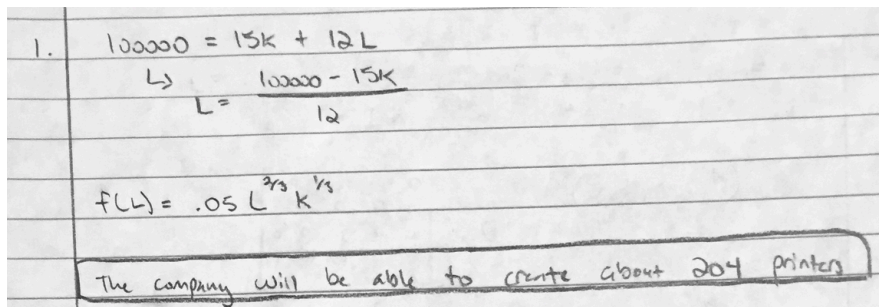 1. 100000 = 15K + 12L
↳ L = (100000 - 15K) / 12
f(L) = .05 L^2/3 K^1/3
The company will be able to create about 204 printers